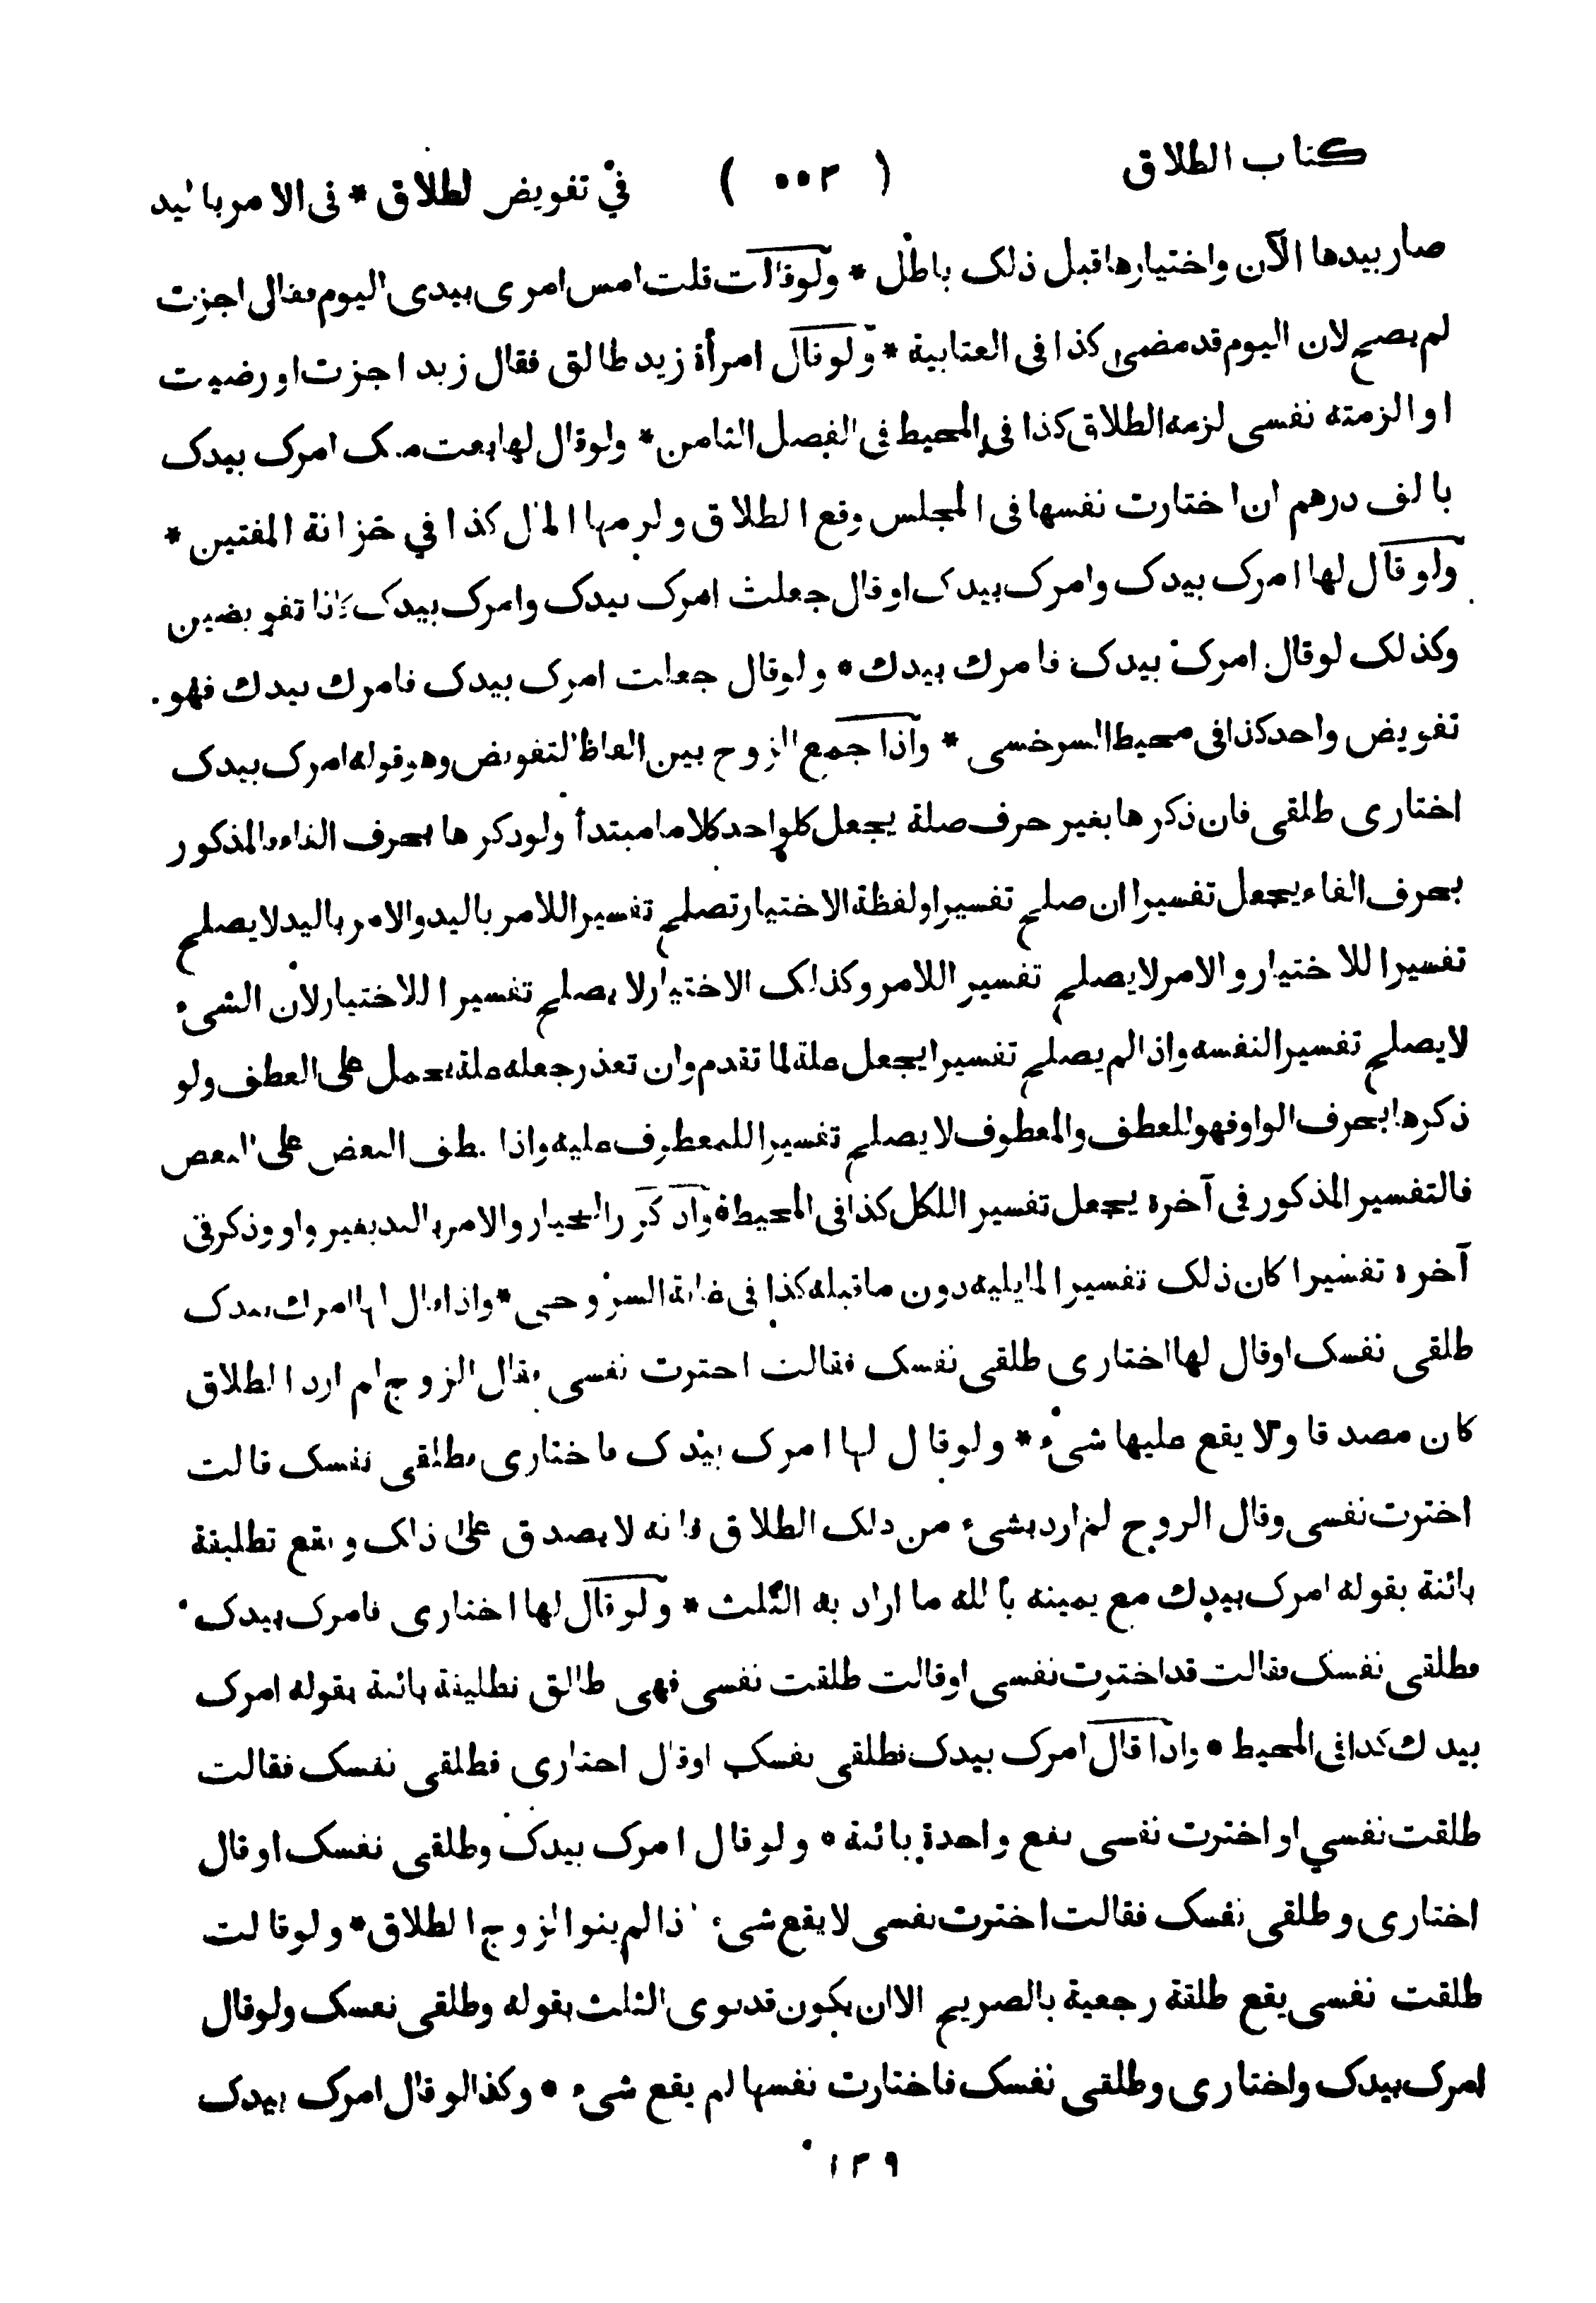 كتاب الطلاق ( ٥٥٣ ) في تفويض الطلاق * في الامر باليد
صار بيدها الآن واختيارها قبل ذلك باطل * ولو قالت قلت امس امري بيدي اليوم فقال اجزت
لم يصح لان اليوم قد مضى كذا في العتابية * ولو قال امرأة زيد طالق فقال زيد اجزت او رضيت
او الزمته نفسي لزمه الطلاق كذا في المحيط في الفصل الثامن * ولو قال لها بعت منك امرك بيدك
بالف درهم ان اختارت نفسها في المجلس وقع الطلاق ولزمها المال كذا في خزانة المفتين *
ولو قال لها امرك بيدك وامرك بيدك او قال جعلت امرك بيدك وامرك بيدك كانا تفويضين
وكذلك لو قال امرك بيدك فامرك بيدك * ولو قال جعلت امرك بيدك فامرك بيدك فهو
تفويض واحد كذا في محيط السرخسي * واذا جمع الزوج بين الفاظ التفويض وهو قوله امرك بيدك
اختاري طلقي فان ذكرها بغير حرف صلة يجعل كل واحد كلاما مبتدأ ولو ذكرها بحرف الفاء فالمذكور
بحرف الفاء يجعل تفسيرا ان صلح تفسيرا ولفظة الاختيار تصلح تفسيرا للامر باليد والامر باليد لا يصلح
تفسيرا للاختيار والامر لا يصلح تفسيرا للامر وكذلك الاختيار لا يصلح تفسيرا للاختيار لان الشيء
لا يصلح تفسيرا لنفسه واذا لم يصلح تفسيرا يجعل علة لما تقدم وان تعذر جعله علة يحمل على العطف ولو
ذكرها بحرف الواو فهو للعطف والمعطوف لا يصلح تفسيرا للمعطوف عليه واذا عطف البعض على البعض
فالتفسير المذكور في آخره يجعل تفسيرا للكل كذا في المحيط * وان كرر الخيار والامر باليد بغير واو وذكر في
آخره تفسيرا كان ذلك تفسيرا لما يليه دون ما قبله كذا في غاية السروجي * واذا قال لها امرك بيدك
طلقي نفسك او قال لها اختاري طلقي نفسك فقالت اخترت نفسي فقال الزوج لم ارد الطلاق
كان مصدقا ولا يقع عليها شيء * ولو قال لها امرك بيدك فاختاري فطلقي نفسك قالت
اخترت نفسي وقال الزوج لم ارد بشيء من ذلك الطلاق فانه لا يصدق على ذلك ويقع تطليقة
بائنة بقوله امرك بيدك مع يمينه بالله ما اراد به الثلث * ولو قال لها اختاري فامرك بيدك
فطلقي نفسك فقالت قد اخترت نفسي او قالت طلقت نفسي فهي طالق تطليقة بائنة بقوله امرك
بيدك كذا في المحيط * واذا قال امرك بيدك فطلقي نفسك او قال اختاري فطلقي نفسك فقالت
طلقت نفسي او اخترت نفسي يقع واحدة بائنة * ولو قال امرك بيدك وطلقي نفسك او قال
اختاري وطلقي نفسك فقالت اخترت نفسي لا يقع شيء اذا لم ينو الزوج الطلاق * ولو قالت
طلقت نفسي يقع طلقة رجعية بالصريح الا ان يكون قد نوى الثلث بقوله وطلقي نفسك ولو قال
امرك بيدك واختاري وطلقي نفسك فاختارت نفسها لم يقع شيء * وكذا لو قال امرك بيدك
١٣٩